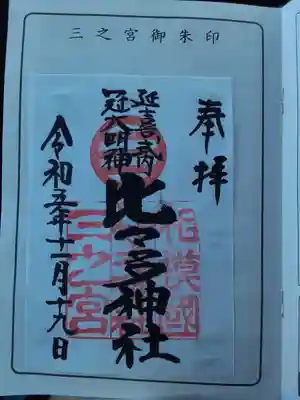 三之宮御朱印
奉拝
延喜式内
冠大明神
比々多神社
相模國
三之宮
令和五年十一月十九日